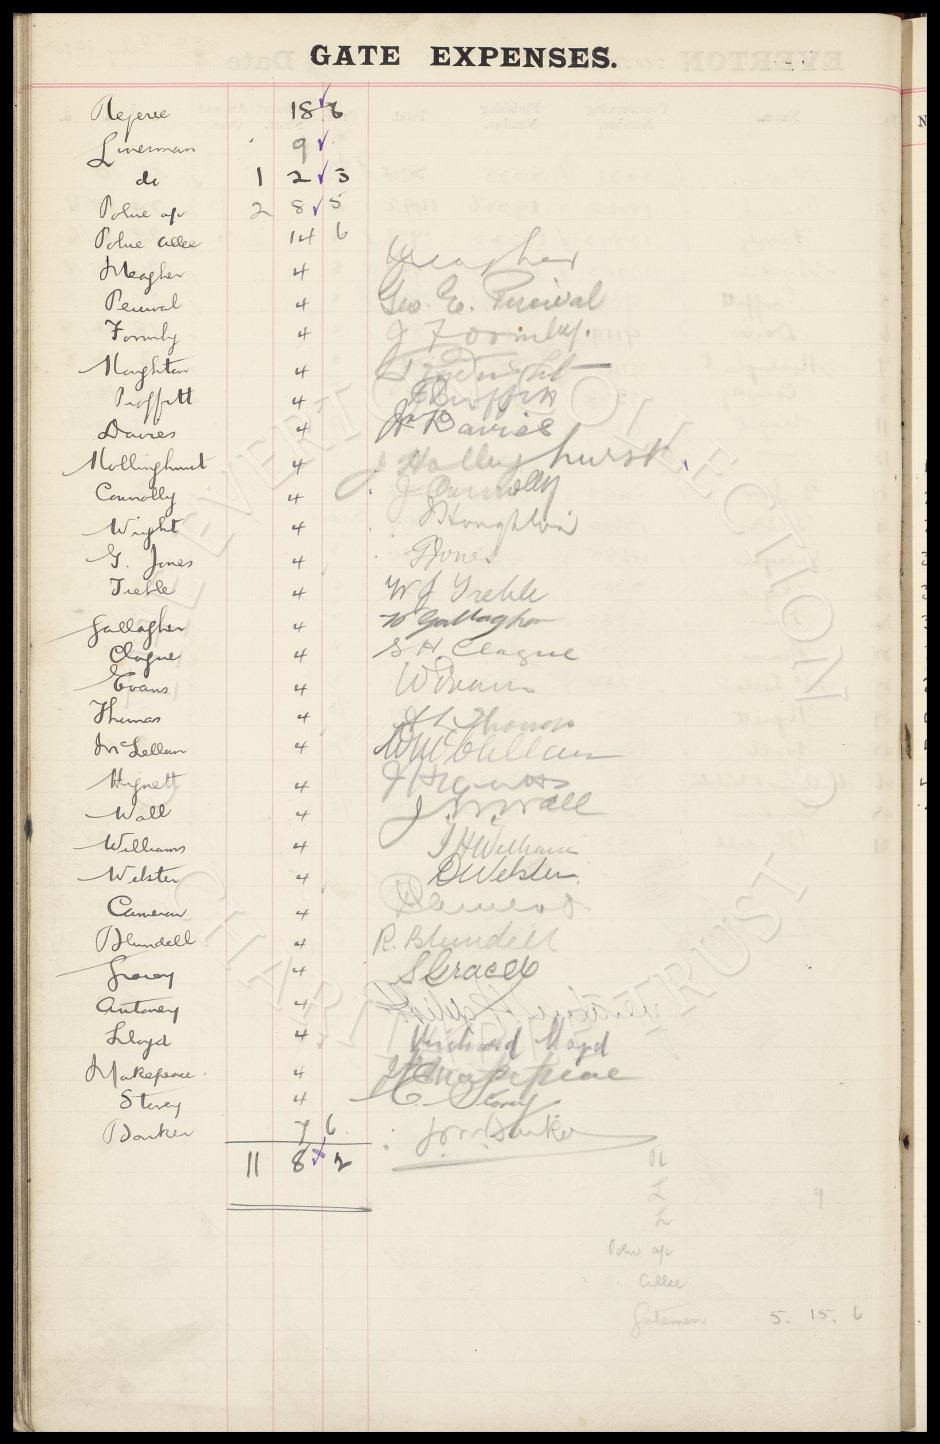 GATE EXPENSES.
Referee 18 6
Linesman 9
do 1 2 3
Police a/c 2 8 5
Police allee 14 6
Meagher 4 Meagher
Percival 4 Geo. E. Percival
Formby 4 J Formby.
Houghton 4
Proffitt 4 Proffitt
Davies 4 Davies
Hollinghurst 4 J Hollinghurst
Connolly 4 J Connolly
Wright 4 J Houghton
G. Jones 4 Jones
Treble 4 W J Treble
Gallagher 4 W Gallagher
Clague 4 S H Clague
Evans 4 W Evans
Thomas 4 J L Thomas
McLellan 4 W McLellan
Hignett 4 J Hignett
Wall 4 J. W. Wall
Williams 4 J H Williams
Webster 4 D Webster
Cameron 4 Cameron
Blundell 4 R. Blundell
Gracey 4 S Gracey
Antoney 4
Lloyd 4 Richard Lloyd
Makepeace 4 Makepeace
Storey 4 C. Storey
Barker 7 6 Barker
11 8 2
R
L 9
L
Police a/c
allee
Gatemen 5. 15. 6
THE EVERTON COLLECTION CHARITABLE TRUST